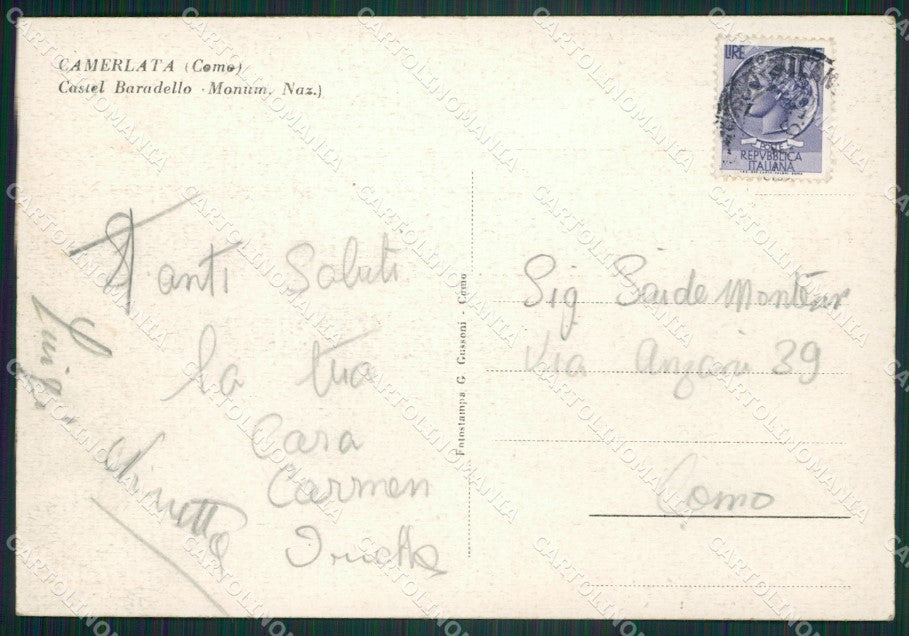 CAMERLATA (Como)
Castel Baradello - Monum. Naz.)
LIRE
POSTE
REPVBBLICA
ITALIANA
Tanti Saluti
la tua
Cara
Carmen
Luigi
Ninetta
Fotostampa G. Gussoni - Como
Sig
Via Anzani 39
Como
CARTOLINOMANIA